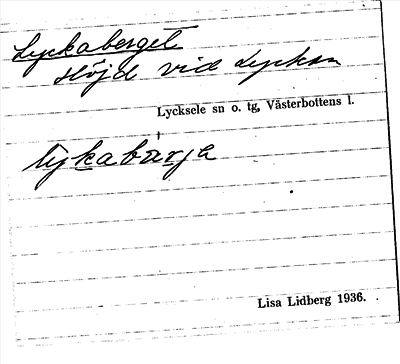 Lyckaberget
slöjd vid Lyckan
Lycksele sn o. tg, Västerbottens l.
lykabarja
Lisa Lidberg 1936.